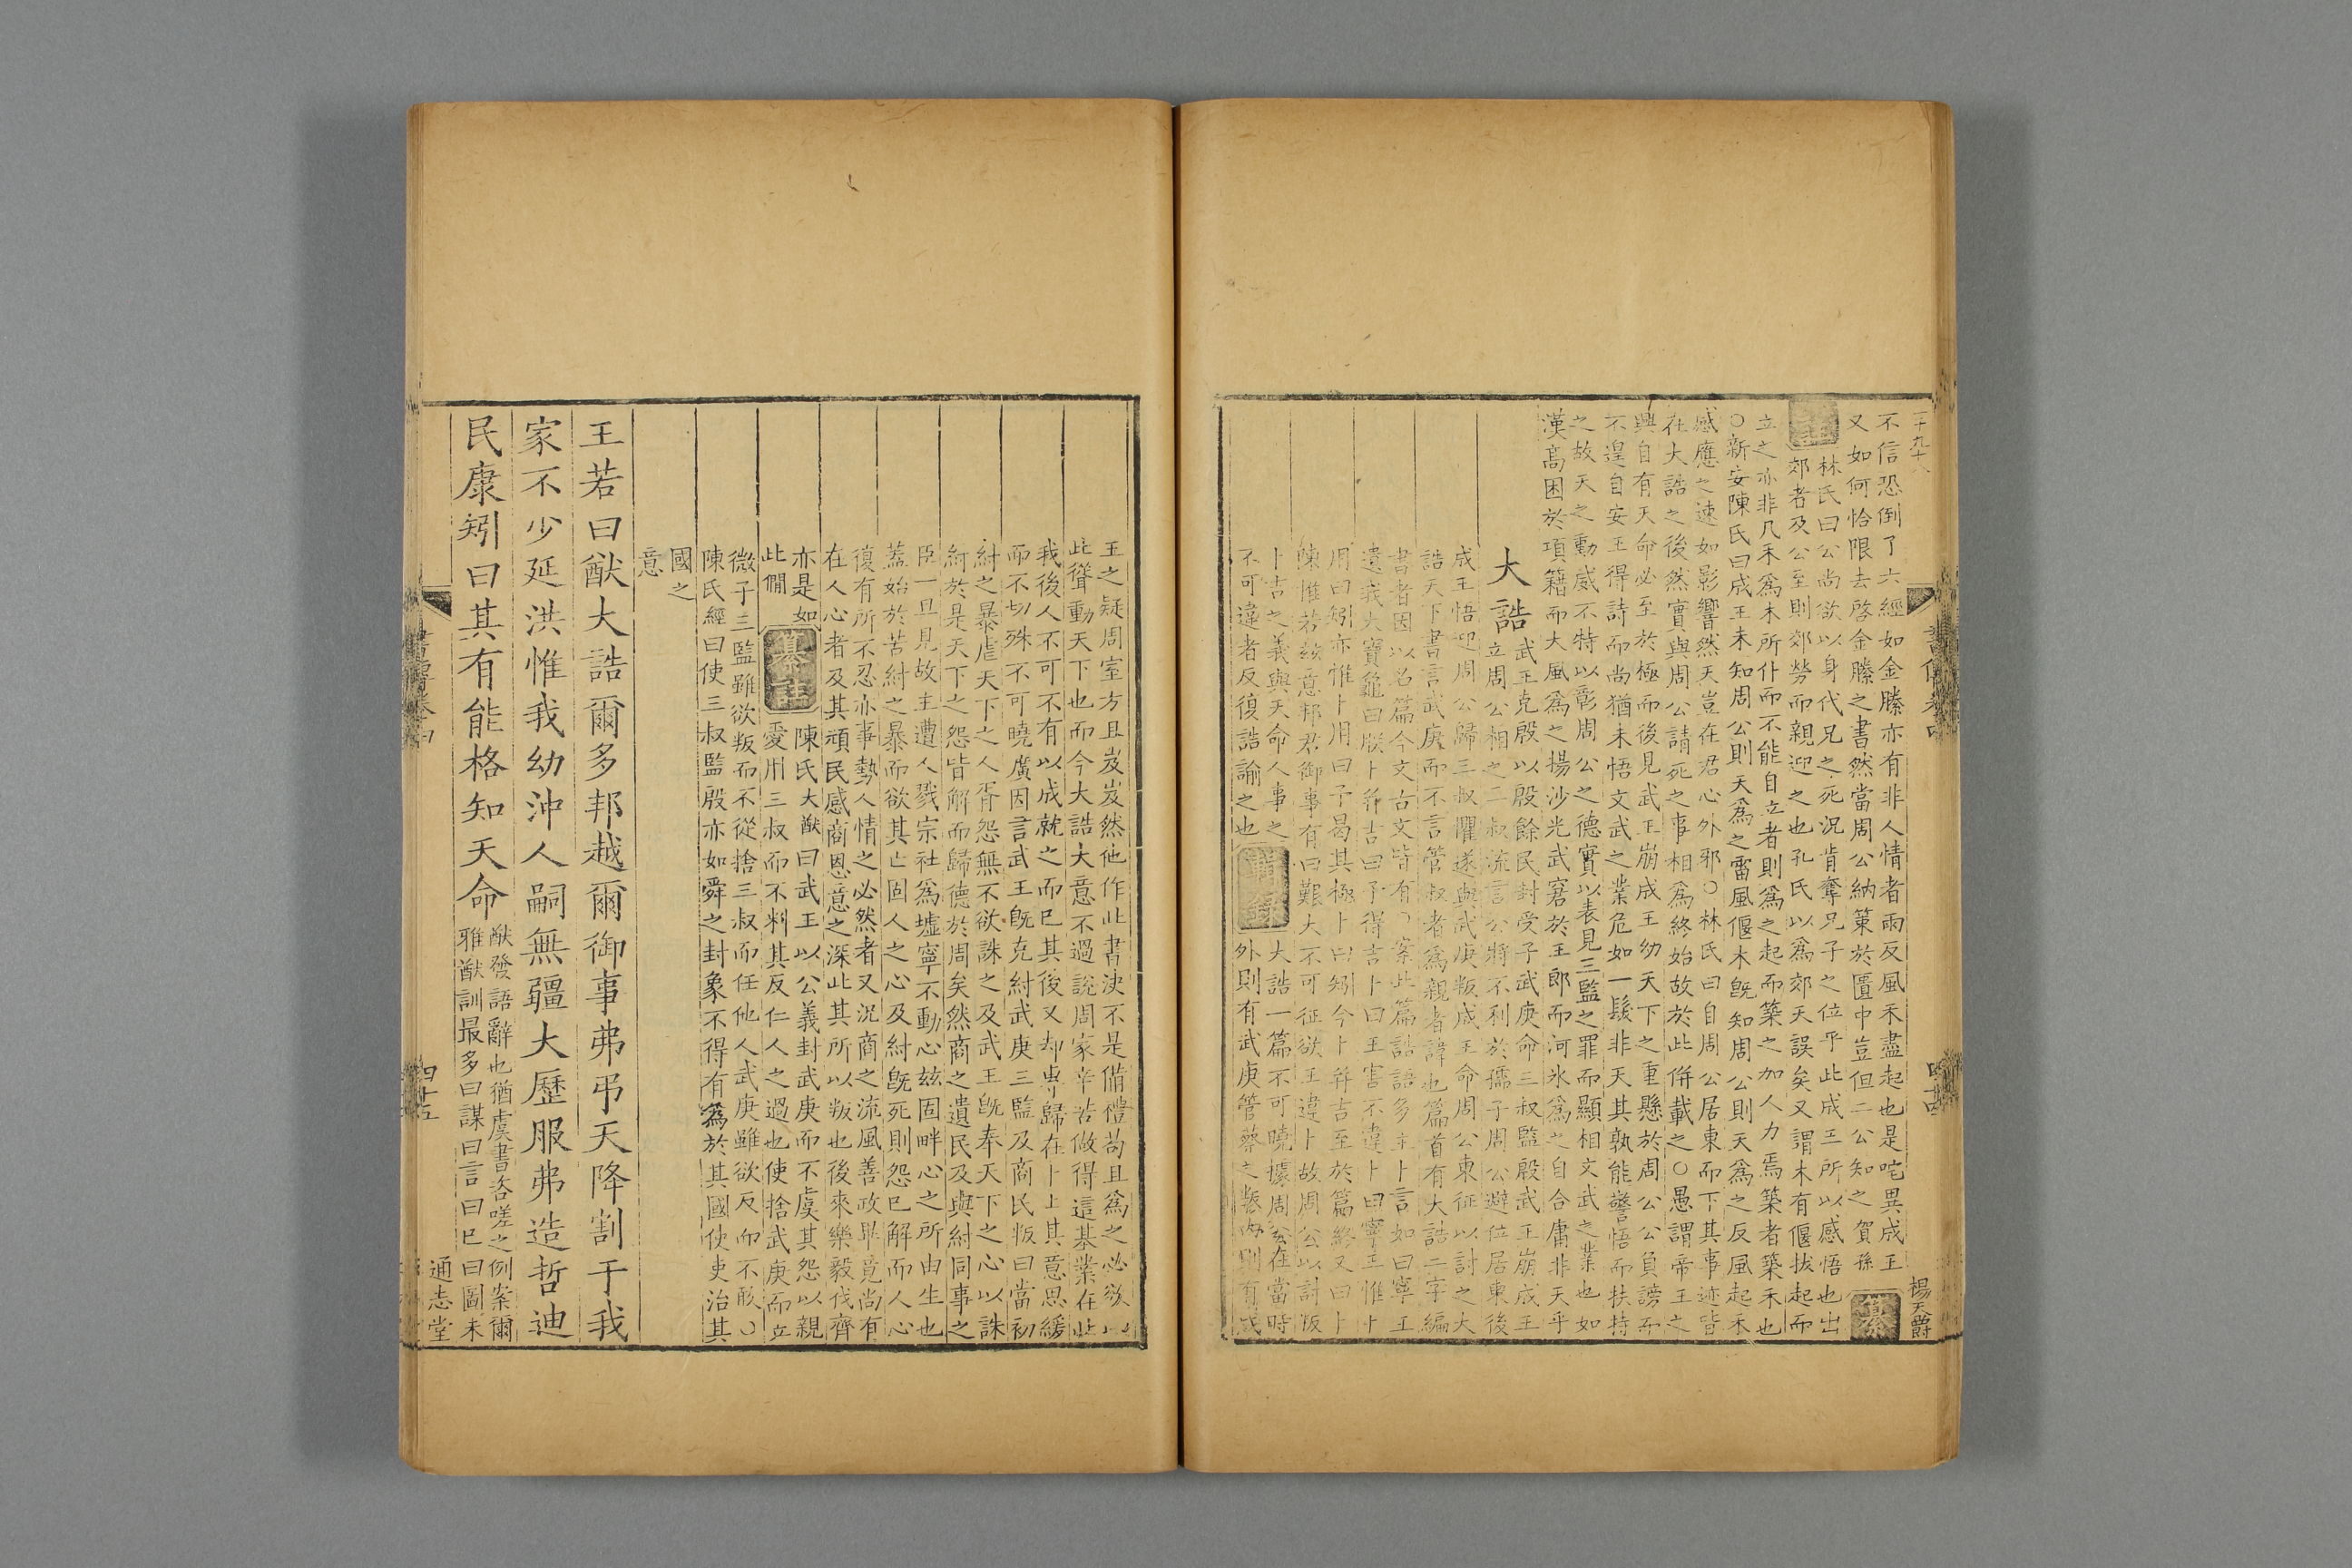 不信恐倒了六經如金縢亦有非人情者雨反風禾盡起也是咤異成王
又如何恰限去啓金縢之書然當周公納策於匱中豈但二公知之賀孫 纂
註 林氏曰公尚欲以身代兄之死況肯奪兄子之位乎此成王所以感悟也出
郊者及公至則郊勞而親迎之也孔氏以爲郊天誤矣又謂木有偃拔起而
立之亦非凡禾爲木所仆而不能自立者則爲之起而築之加人力焉築者築禾也
○新安陳氏曰成王未知周公則天爲之雷風偃木旣知周公則天爲之反風起禾
感應之速如影響然天豈在君心外邪○林氏曰自周公居東而下其事迹皆
在大誥之後然實與周公請死之事相爲終始故於此併載之○愚謂帝王之
興自有天命必至於極而後見武王崩成王幼天下之重懸於周公公負謗而
不遑自安王得詩而尚猶未悟文武之業危如一髮非天其孰能警悟而扶持
之故天之動威不特以彰周公之德實以表見三監之罪而顯相文武之業也如
漢高困於項籍而大風爲之揚沙光武窘於王郎而河氷爲之自合庸非天乎
大誥 武王克殷以殷餘民封受子武庚命三叔監殷武王崩成王
立周公相之二叔流言公將不利於孺子周公避位居東後
成王悟迎周公歸三叔懼遂與武庚叛成王命周公東征以討之大
誥天下書言武庚而不言管叔者爲親者諱也篇首有大誥二字編
書者因以名篇今文古文皆有○案此篇誥語多主卜言如曰寧王
遺我大寶龜曰朕卜幷吉曰予得吉卜曰王害不違卜曰寧王惟卜
用曰矧亦惟卜用曰予曷其極卜曰矧今卜幷吉至於篇終又曰卜
陳惟若玆意邦君御事有曰艱大不可征欲王違卜故周公以討叛
卜吉之義與天命人事之
不可違者反復誥諭之也 輯錄 大誥一篇不可曉據周公在當時
外則有武庚管蔡之叛內則有成
王之疑周室方且岌岌然他作此書決不是備禮苟且爲之必欲以
此聳動天下也而今大誥大意不過說周家辛苦做得這基業在此
我後人不可不有以成就之而已其後又却專歸在卜上其意思緩
而不切殊不可曉廣因言武王旣克紂武庚三監及商民叛曰當初
紂之暴虐天下之人胥怨無不欲誅之及武王旣奉天下之心以誅
紂於是天下之怨皆解而歸德於周矣然商之遺民及與紂同事之
臣一旦見故主遭人戮宗社爲墟寧不動心玆固畔心之所由生也
蓋始於苦紂之暴而欲其亡固人之心及紂旣死則怨已解而人心
復有所不忍亦事勢人情之必然者又況商之流風善政畢竟尚有
在人心者及其頑民感商恩意之深此其所以叛也後來樂毅伐齊
亦是如
此僩 纂註 陳氏大猷曰武王以公義封武庚而不虞其怨以親
愛用三叔而不料其反仁人之過也使捨武庚而立
微子三監雖欲叛而不從捨三叔而任他人武庚雖欲反而不敢○
陳氏經曰使三叔監殷亦如舜之封象不得有爲於其國使吏治其
國之
意
王若曰猷大誥爾多邦越爾御事弗弔天降割于我
家不少延洪惟我幼沖人嗣無疆大歷服弗造哲迪
民康矧曰其有能格知天命 猷發語辭也猶虞書咨嗟之例案爾
雅猷訓最多曰謀曰言曰已曰圖未
楊天爵
四十五
通志堂